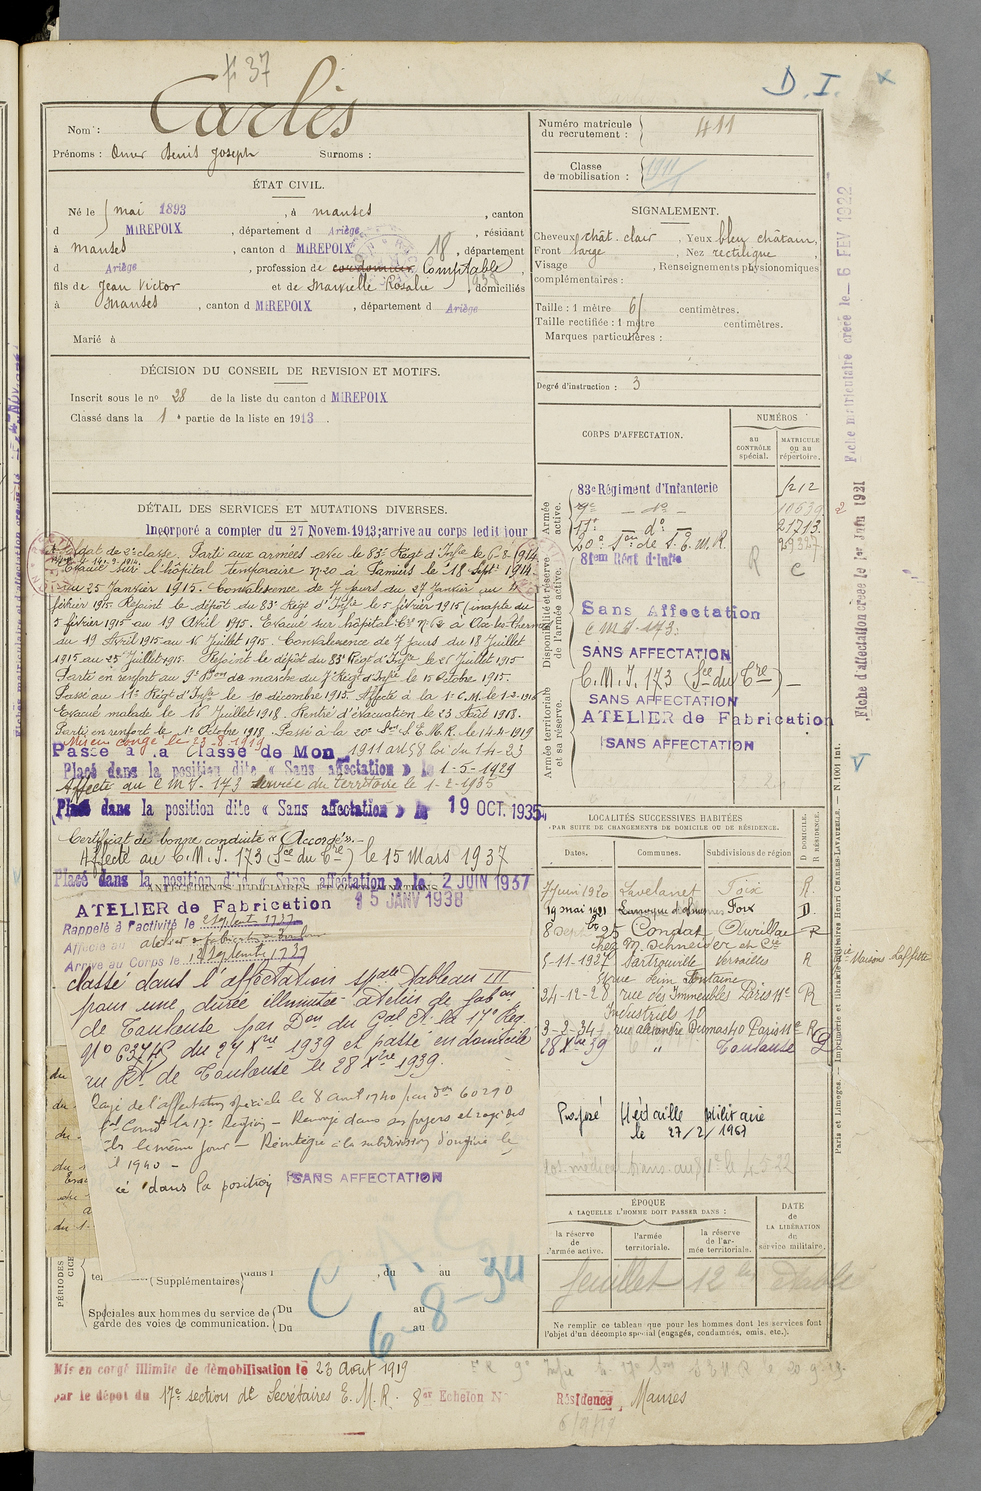 D. I.
37
Nom : Carlès
Prénoms : Omer Denis Joseph Surnoms :
Numéro matricule du recrutement : 411
Classe de mobilisation : 1911
ÉTAT CIVIL.
Né le mai 1893, à Manses, canton
d MIREPOIX, département d Ariège, résidant
à Manses, canton d MIREPOIX 18, département
d Ariège, profession de cordonnier Comptable,
fils de Jean Victor et de Marcelle Rosalie, domiciliés
à Manses, canton d MIREPOIX, département d Ariège
Marié à
SIGNALEMENT.
Cheveux chât. clair, Yeux bleu châtain,
Front large, Nez rectiligne,
Visage, Renseignements physionomiques
complémentaires :
Taille : 1 mètre 61 centimètres.
Taille rectifiée : 1 mètre centimètres.
Marques particulières :
DÉCISION DU CONSEIL DE REVISION ET MOTIFS.
Inscrit sous le no 28 de la liste du canton d MIREPOIX
Classé dans la 1e partie de la liste en 1913.
Degré d'instruction : 3
CORPS D'AFFECTATION.
NUMÉROS
au CONTRÔLE spécial.
MATRICULE ou au répertoire.
Armée active.
83e Régiment d'Infanterie 1212
7e — do —
11e — do — 21213
20e Son de S. E. M. R.
Disponibilité et réserve de l'armée active.
81em Régt d'Infie R C
Sans Affectation
C M I 173.
SANS AFFECTATION
Armée territoriale et sa réserve.
C. M. I. 173 (Sce du Tre) —
SANS AFFECTATION
ATELIER de Fabrication
SANS AFFECTATION
DÉTAIL DES SERVICES ET MUTATIONS DIVERSES.
Incorporé a compter du 27 Novem. 1913; arrivé au corps ledit jour
Soldat de 2e classe. Parti aux armées avec le 83e Régt d'Infie le 6-8-1914
Evacué sur l'hôpital temporaire no 20 à Pamiers le 18 Sept. 1914
au 25 Janvier 1915. Convalescence de 7 jours du 27 Janvier au 4
février 1915. Rejoint le dépôt du 83e Régt d'Infie le 5 février 1915 (inapte du
5 février 1915 au 19 Avril 1915. Evacué sur hôpital Cre no 62 à Ax-les-Thermes
du 19 Avril 1915 au 16 Juillet 1915. Convalescence de 7 jours du 18 Juillet
1915 au 25 Juillet 1915. Rejoint le dépôt du 83e Régt d'Infie le 25 Juillet 1915
Parti en renfort au 9e Bon de marche du 7e Régt d'Infie le 15 Octobre 1915.
Passé au 11e Régt d'Infie le 10 décembre 1915. Affecté à la 1e C. M. le 1-2-1916
Evacué malade le 16 Juillet 1918. Rentré d'évacuation le 23 Août 1918.
Parti en renfort le 1er Octobre 1918. Passé à la 20e Son S. E. M. R. le 14-4-1919
Mis en congé le 23-8-1919
Passé à la Classe de Mon 1911 art 58 loi du 1-4-23
Placé dans la position dite « Sans affectation » le 1-5-1929
Affecté au C M I - 173 service du territoire le 1-2-1935
Placé dans la position dite « Sans affectation » le 19 OCT. 1935
Certificat de bonne conduite « Accordé ».
Affecté au C. M. I. 173 (Sce du Tre) le 15 Mars 1937
Placé dans la position dite « Sans affectation » le 2 JUIN 1937
ATELIER de Fabrication 15 JANV 1938
Rappelé à l'activité le 2 Septembre 1939
Affecté au atelier de fabrication de Toulouse
Arrivé au Corps le 12 Septembre 1939
classé dans l'affectation spale tableau III
pour une durée illimitée atelier de fabon
de Toulouse par Don du Gal Ct la 17e Reg
No 6374S du 24 Xbre 1939 et passé en domicile
au Rt de Toulouse le 28 Xbre 1939.
Rayé de l'affectation spéciale le 8 avril 1940 par Don 60290
Gal Comdt la 17e Région — Renvoyé dans ses foyers et rayé des
le même jour — Réintègre à la subdivision d'origine le
1940 —
dans la position SANS AFFECTATION
LOCALITÉS SUCCESSIVES HABITÉES
PAR SUITE DE CHANGEMENTS DE DOMICILE OU DE RÉSIDENCE.
Dates. Communes. Subdivisions de région D DOMICILE. R RÉSIDENCE.
7 Juin 1920 Lavelanet Foix R.
19 mai 1921 Laroque d'Olmes Foix D.
8 Septbre 25 Condat Aurillac R
chez M. Schneider et Cie
5-11-1927 Sartrouville Versailles R Maisons Laffitte
24-12-28 rue des Immeubles Industriels 10 Paris 11e R
3-2-34 rue Alexandre Dumas 40 Paris 11e R
28 Xbre 39 " Toulouse D
Proposé Médaille Militaire
le 27/2/1967
ÉPOQUE
A LAQUELLE L'HOMME DOIT PASSER DANS :
la réserve de l'armée active.
l'armée territoriale.
la réserve de l'armée territoriale.
DATE de LA LIBÉRATION du service militaire.
feuillet 12
Ne remplir ce tableau que pour les hommes dont les services font
l'objet d'un décompte spécial (engagés, condamnés, omis, etc.).
PÉRIODES
(Supplémentaires) dans l , du au
Spéciales aux hommes du service de garde des voies de communication. Du au
Du au
6-8-34
Mis en congé illimité de démobilisation le 23 Août 1919
par le dépôt du 17e section de Secrétaires E. M. R. 8er Echelon N
Résidence Manses
Fiche matriculaire créée le 6 FEV 1922
Fiche d'affectation créée le 1er Juin 1921
Paris et Limoges. — Imprimerie et librairie militaires Henri CHARLES-LAVAUZELLE. — N. 1001 int.